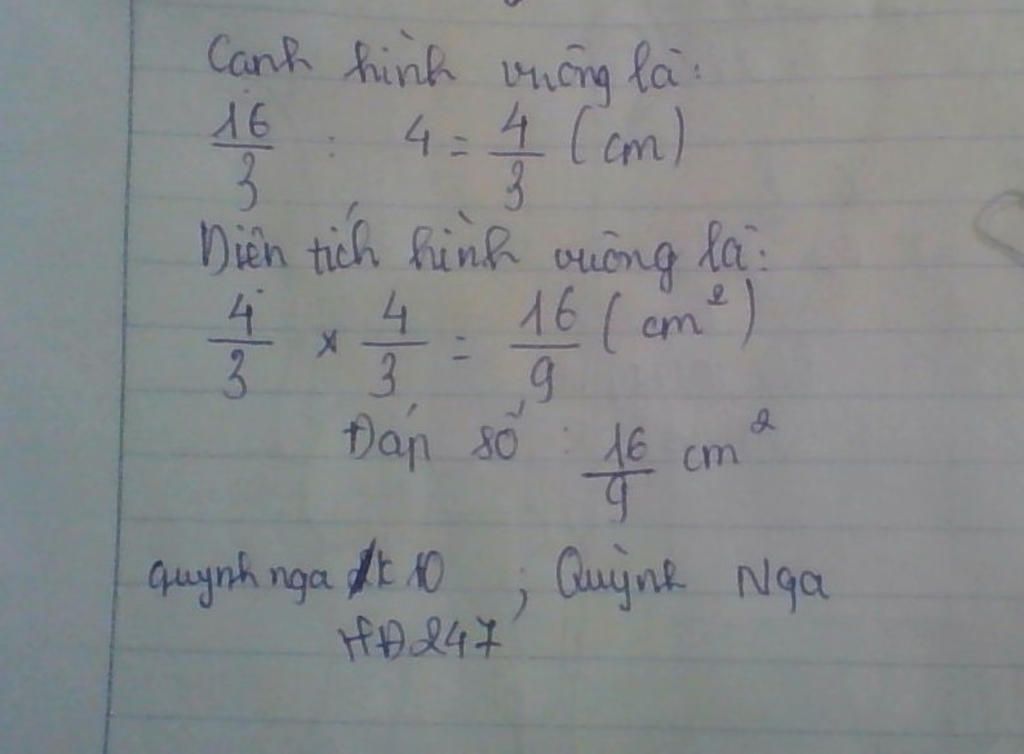 Canh hình vuông là:
16/3 : 4 = 4/3 (cm)
Diên tích hình vuông là:
4/3 × 4/3 = 16/9 (cm²)
Đáp số : 16/9 cm²
quynh nga k10 ; Quỳnh Nga
HĐ247